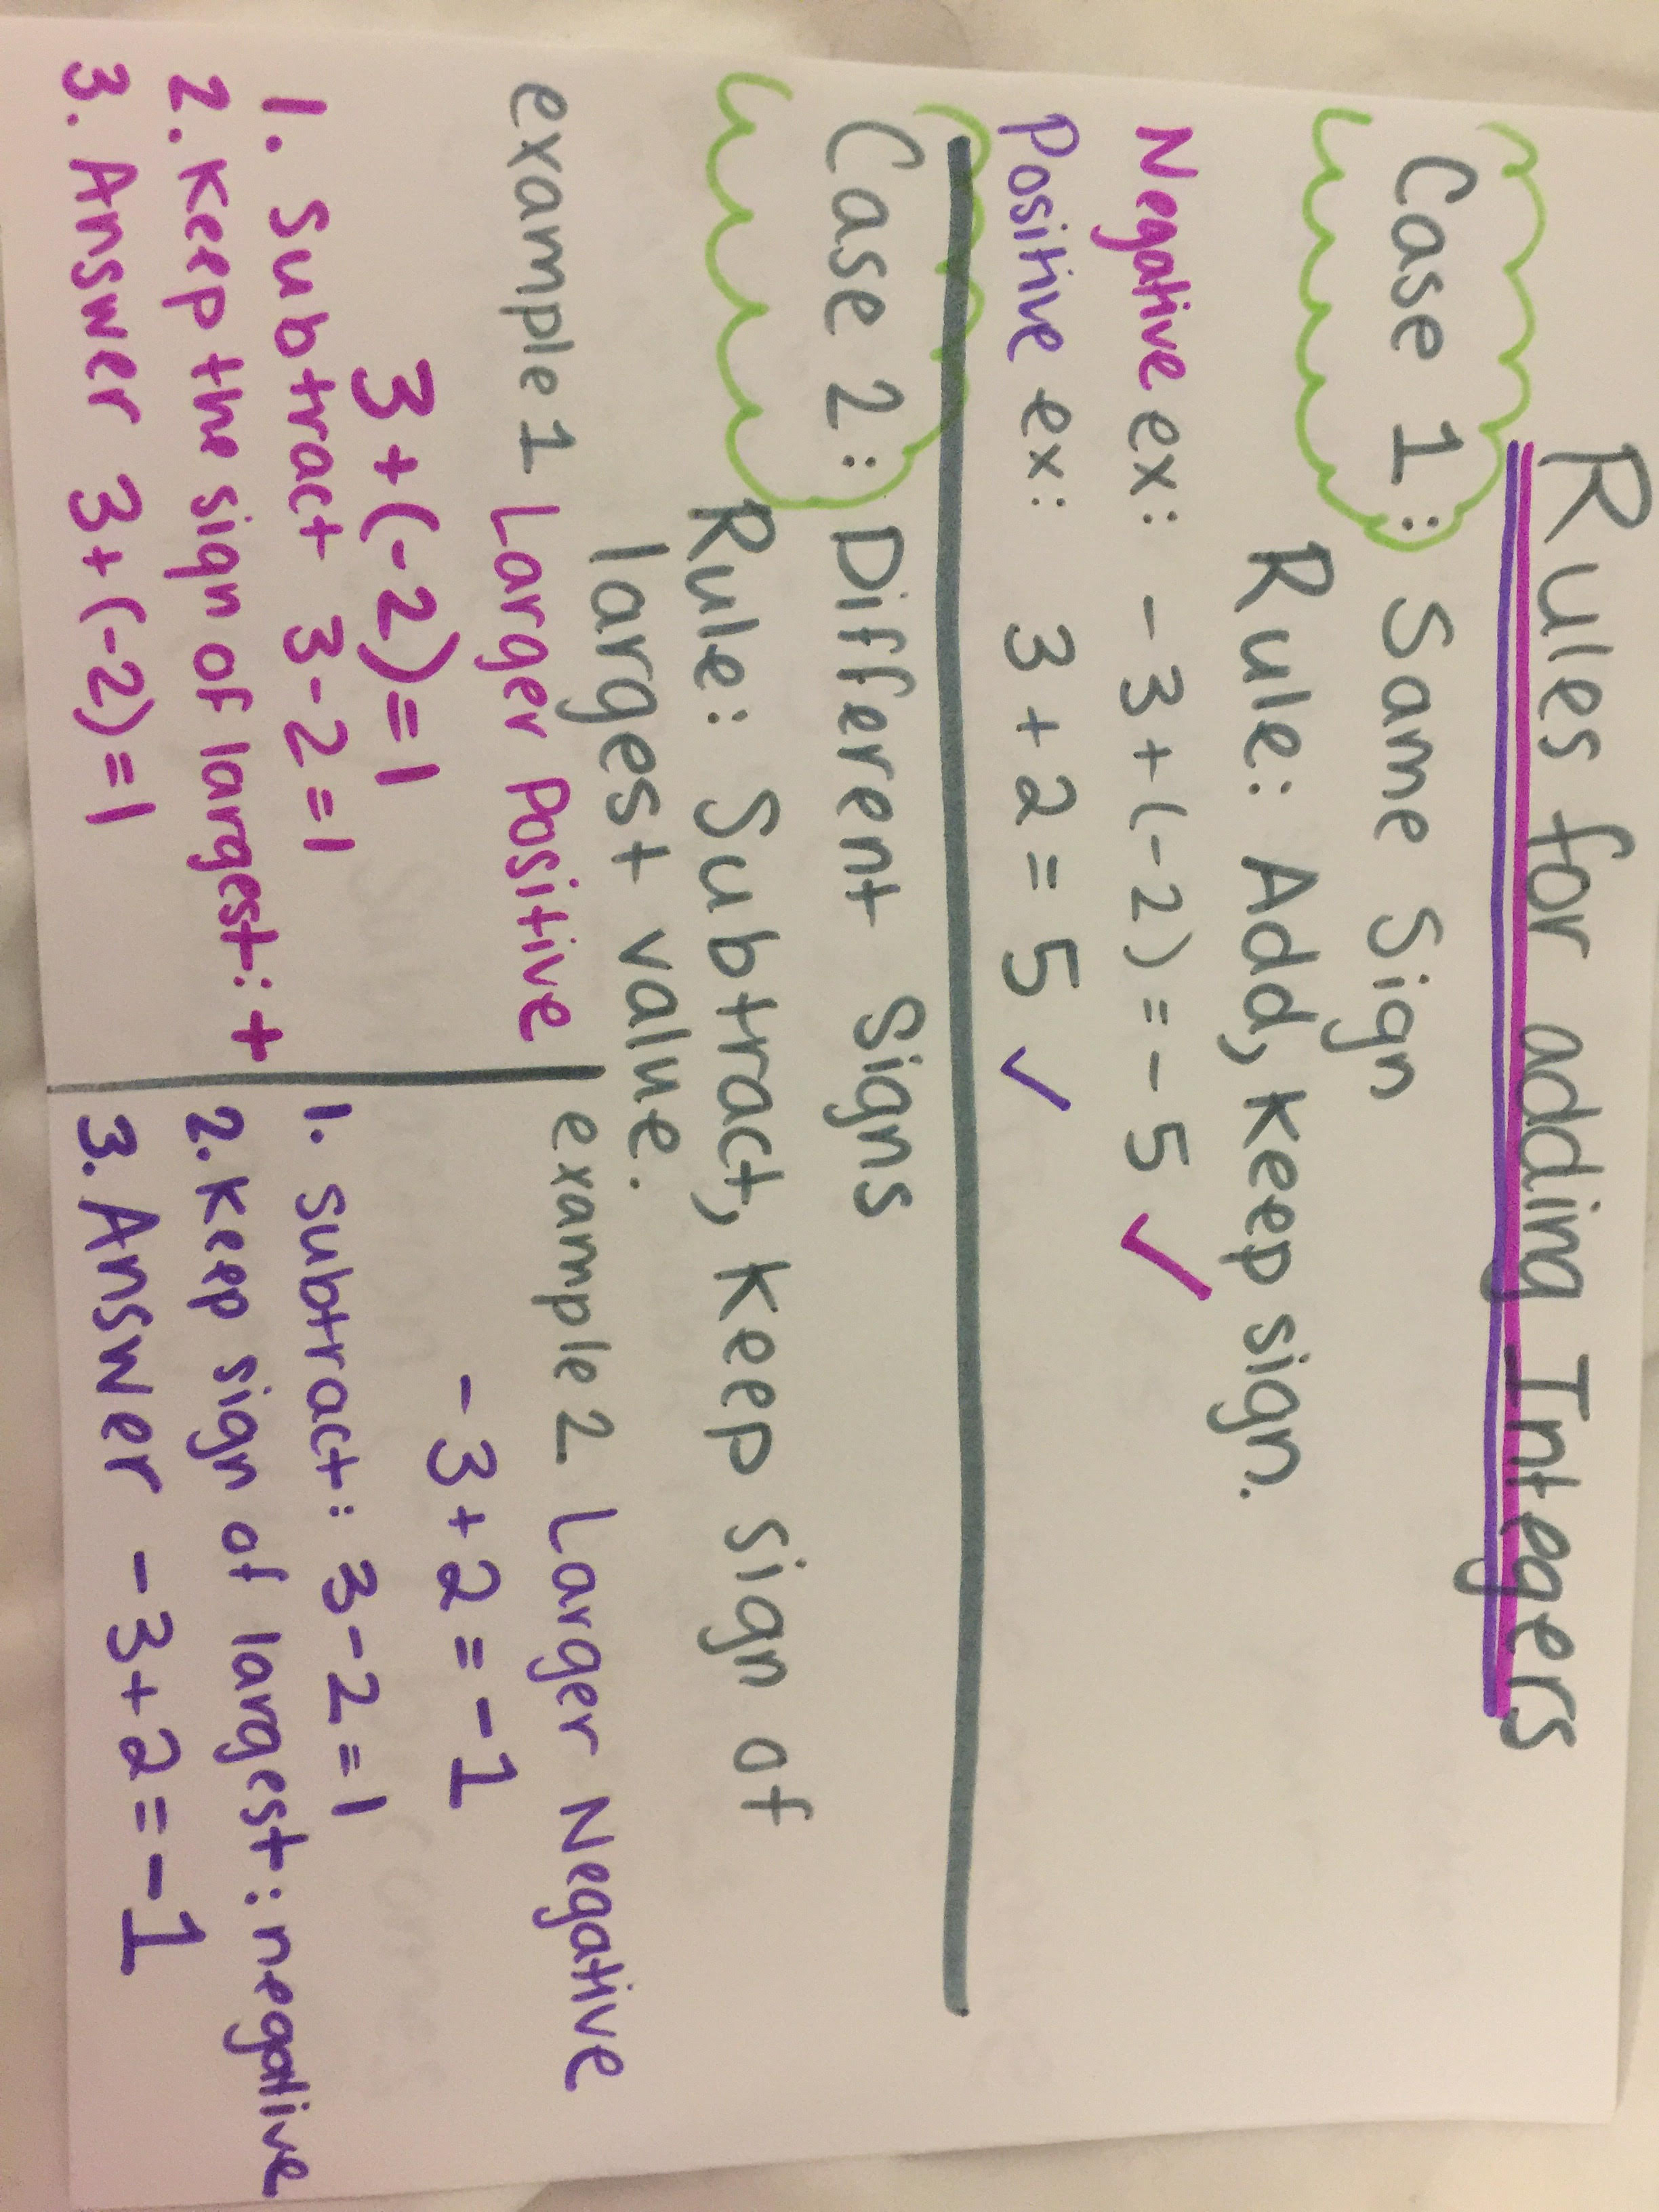 Rules for adding Integers
Case 1: Same Sign
Rule: Add, Keep sign.
Negative ex: -3+(-2)=-5 ✓
Positive ex: 3+2=5 ✓
Case 2: Different Signs
Rule: Subtract, Keep sign of
largest value.
example 1 Larger Positive
3+(-2)=1
1. Subtract 3-2=1
2. Keep the sign of largest: +
3. Answer 3+(-2)=1
example 2 Larger Negative
-3+2=-1
1. subtract: 3-2=1
2. Keep sign of largest: negative
3. Answer -3+2=-1